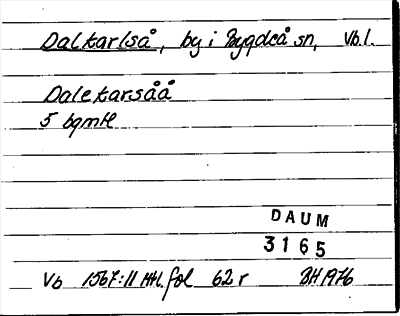 Dalkarlså, by i Bygdeå sn, Vb.l.
Dalekarsåå
5 bgmtl
DAUM
3165
Vb 1567:11 Htl. fol 62 r BH 1976